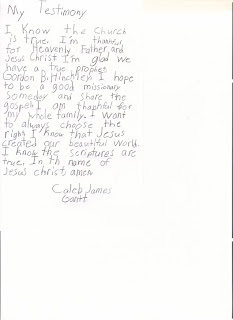 My Testimony
I know the Church
is true. I'm thankful
for Heavenly Father, and
Jesus Christ I'm glad we
have a true prophet
Gordon B. Hinckley. I hope
to be a good missionary
Someday and share the
gospel I am thankful for
my whole family. I want
to always choose the
right I know that Jesus
created our beautiful world.
I know the scriptures are
true. In th name of
Jesus christ, amen
Caleb James
Gantt